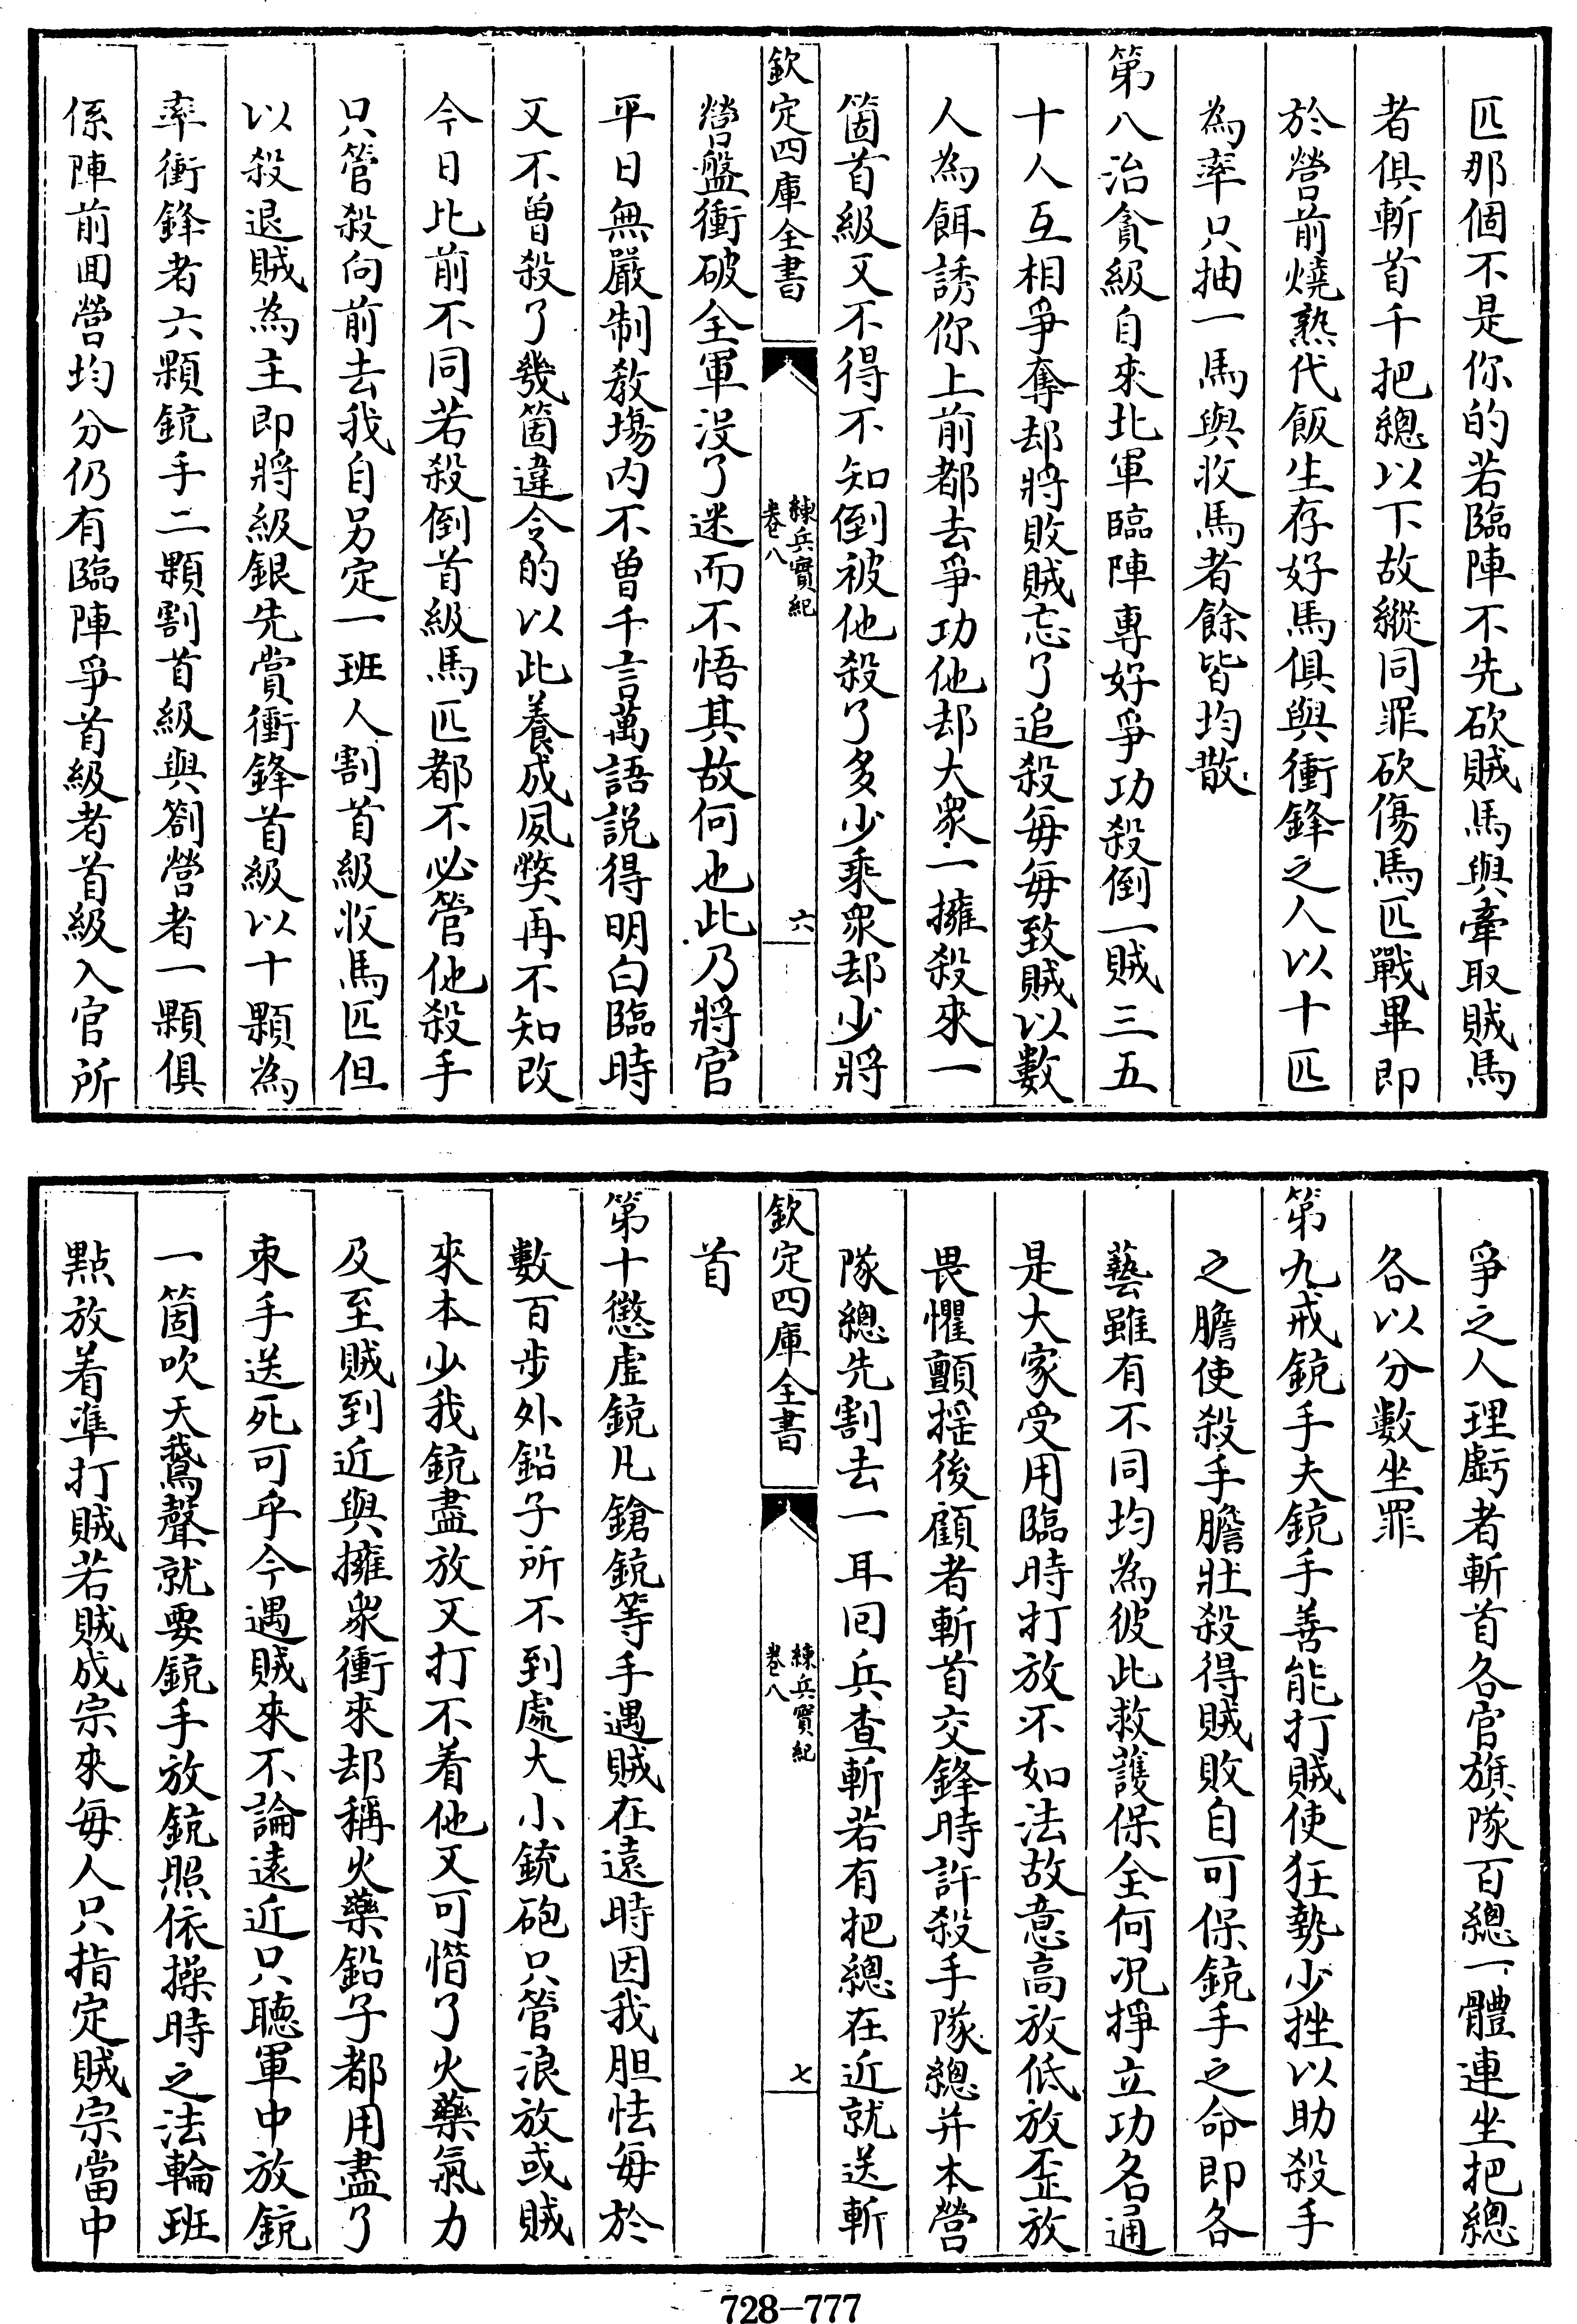 匹那個不是你的若臨陣不先砍賊馬與牽取賊馬
者俱斬首千把總以下故縱同罪砍傷馬匹戰畢即
於營前燒熟代飯生存好馬俱與衝鋒之人以十匹
為率只抽一馬與收馬者餘皆均散
第八治貪級自來北軍臨陣專好爭功殺倒一賊三五
十人互相爭奪却將敗賊忘了追殺每每致賊以數
人為餌誘你上前都去爭功他却大衆一擁殺來一
箇首級又不得不知倒被他殺了多少乘衆却少將
欽定四庫全書
練兵實紀
卷八
六
營盤衝破全軍沒了迷而不悟其故何也此乃將官
平日無嚴制教塲内不曾千言萬語説得明白臨時
又不曾殺了幾箇違令的以此養成夙弊再不知改
今日比前不同若殺倒首級馬匹都不必管他殺手
只管殺向前去我自另定一班人割首級收馬匹但
以殺退賊為主即將級銀先賞衝鋒首級以十顆為
率衝鋒者六顆銃手二顆割首級與劄營者一顆俱
係陣前回營均分仍有臨陣爭首級者首級入官所
爭之人理虧者斬首各官旗隊百總一體連坐把總
各以分數坐罪
第九戒銃手夫銃手善能打賊使狂勢少挫以助殺手
之膽使殺手膽壯殺得賊敗自可保銃手之命即各
藝雖有不同均為彼此救護保全何况掙立功名通
是大家受用臨時打放不如法故意高放低放歪放
畏懼顫摇後顧者斬首交鋒時許殺手隊總并本營
隊總先割去一耳回兵查斬若有把總在近就送斬
欽定四庫全書
練兵實紀
卷八
七
首
第十懲虚銃凡鎗銃等手遇賊在遠時因我胆怯每於
數百步外鉛子所不到處大小銃砲只管浪放或賊
來本少我銃盡放又打不着他又可惜了火藥氣力
及至賊到近與擁衆衝來却稱火藥鉛子都用盡了
束手送死可乎今遇賊來不論遠近只聽軍中放銃
一箇吹天鵞聲就要銃手放銃照依操時之法輪班
點放着準打賊若賊成宗來每人只指定賊宗當中
728-777